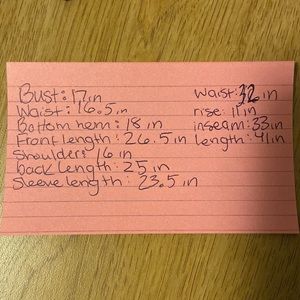 Bust: 17in
Waist: 16.5in
Bottom hem: 18 in
Front length: 26.5 in
Shoulder: 16 in
back length: 25 in
Sleeve length: 23.5 in
waist: in
rise: 11 in
inseam: 33in
length: 41in